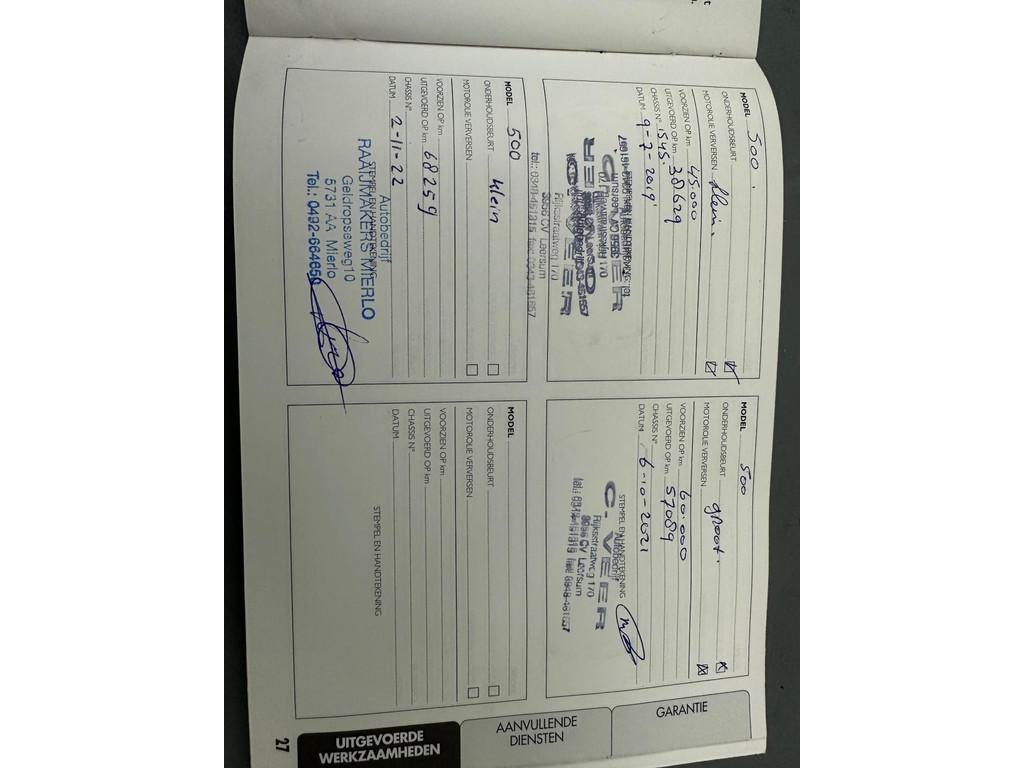 MODEL 500.
ONDERHOUDSBEURT klein.
MOTOROLIE VERVERSEN
VOORZIEN OP km 45.000
UITGEVOERD OP km 38629
CHASSIS N° 1545.
DATUM 9-7-2019
C. VEER
Rijksstraatweg 170
3956 CV Leersum
MODEL 500
ONDERHOUDSBEURT groot.
MOTOROLIE VERVERSEN
VOORZIEN OP km 60.000
UITGEVOERD OP km 57089
CHASSIS N°
DATUM 6-10-2021
STEMPEL EN HANDTEKENING
Autobedrijf
C. VEER
Rijksstraatweg 170
3956 CV Leersum
MODEL 500
ONDERHOUDSBEURT klein
MOTOROLIE VERVERSEN
VOORZIEN OP km
UITGEVOERD OP km 68259
CHASSIS N°
DATUM 2-11-22
STEMPEL EN HANDTEKENING
Autobedrijf
RAAIJMAKERS MIERLO
Geldropseweg10
5731 AA Mierlo
Tel.: 0492-664650
MODEL
ONDERHOUDSBEURT
MOTOROLIE VERVERSEN
VOORZIEN OP km
UITGEVOERD OP km
CHASSIS N°
DATUM
STEMPEL EN HANDTEKENING
GARANTIE
AANVULLENDE
DIENSTEN
UITGEVOERDE
WERKZAAMHEDEN
27